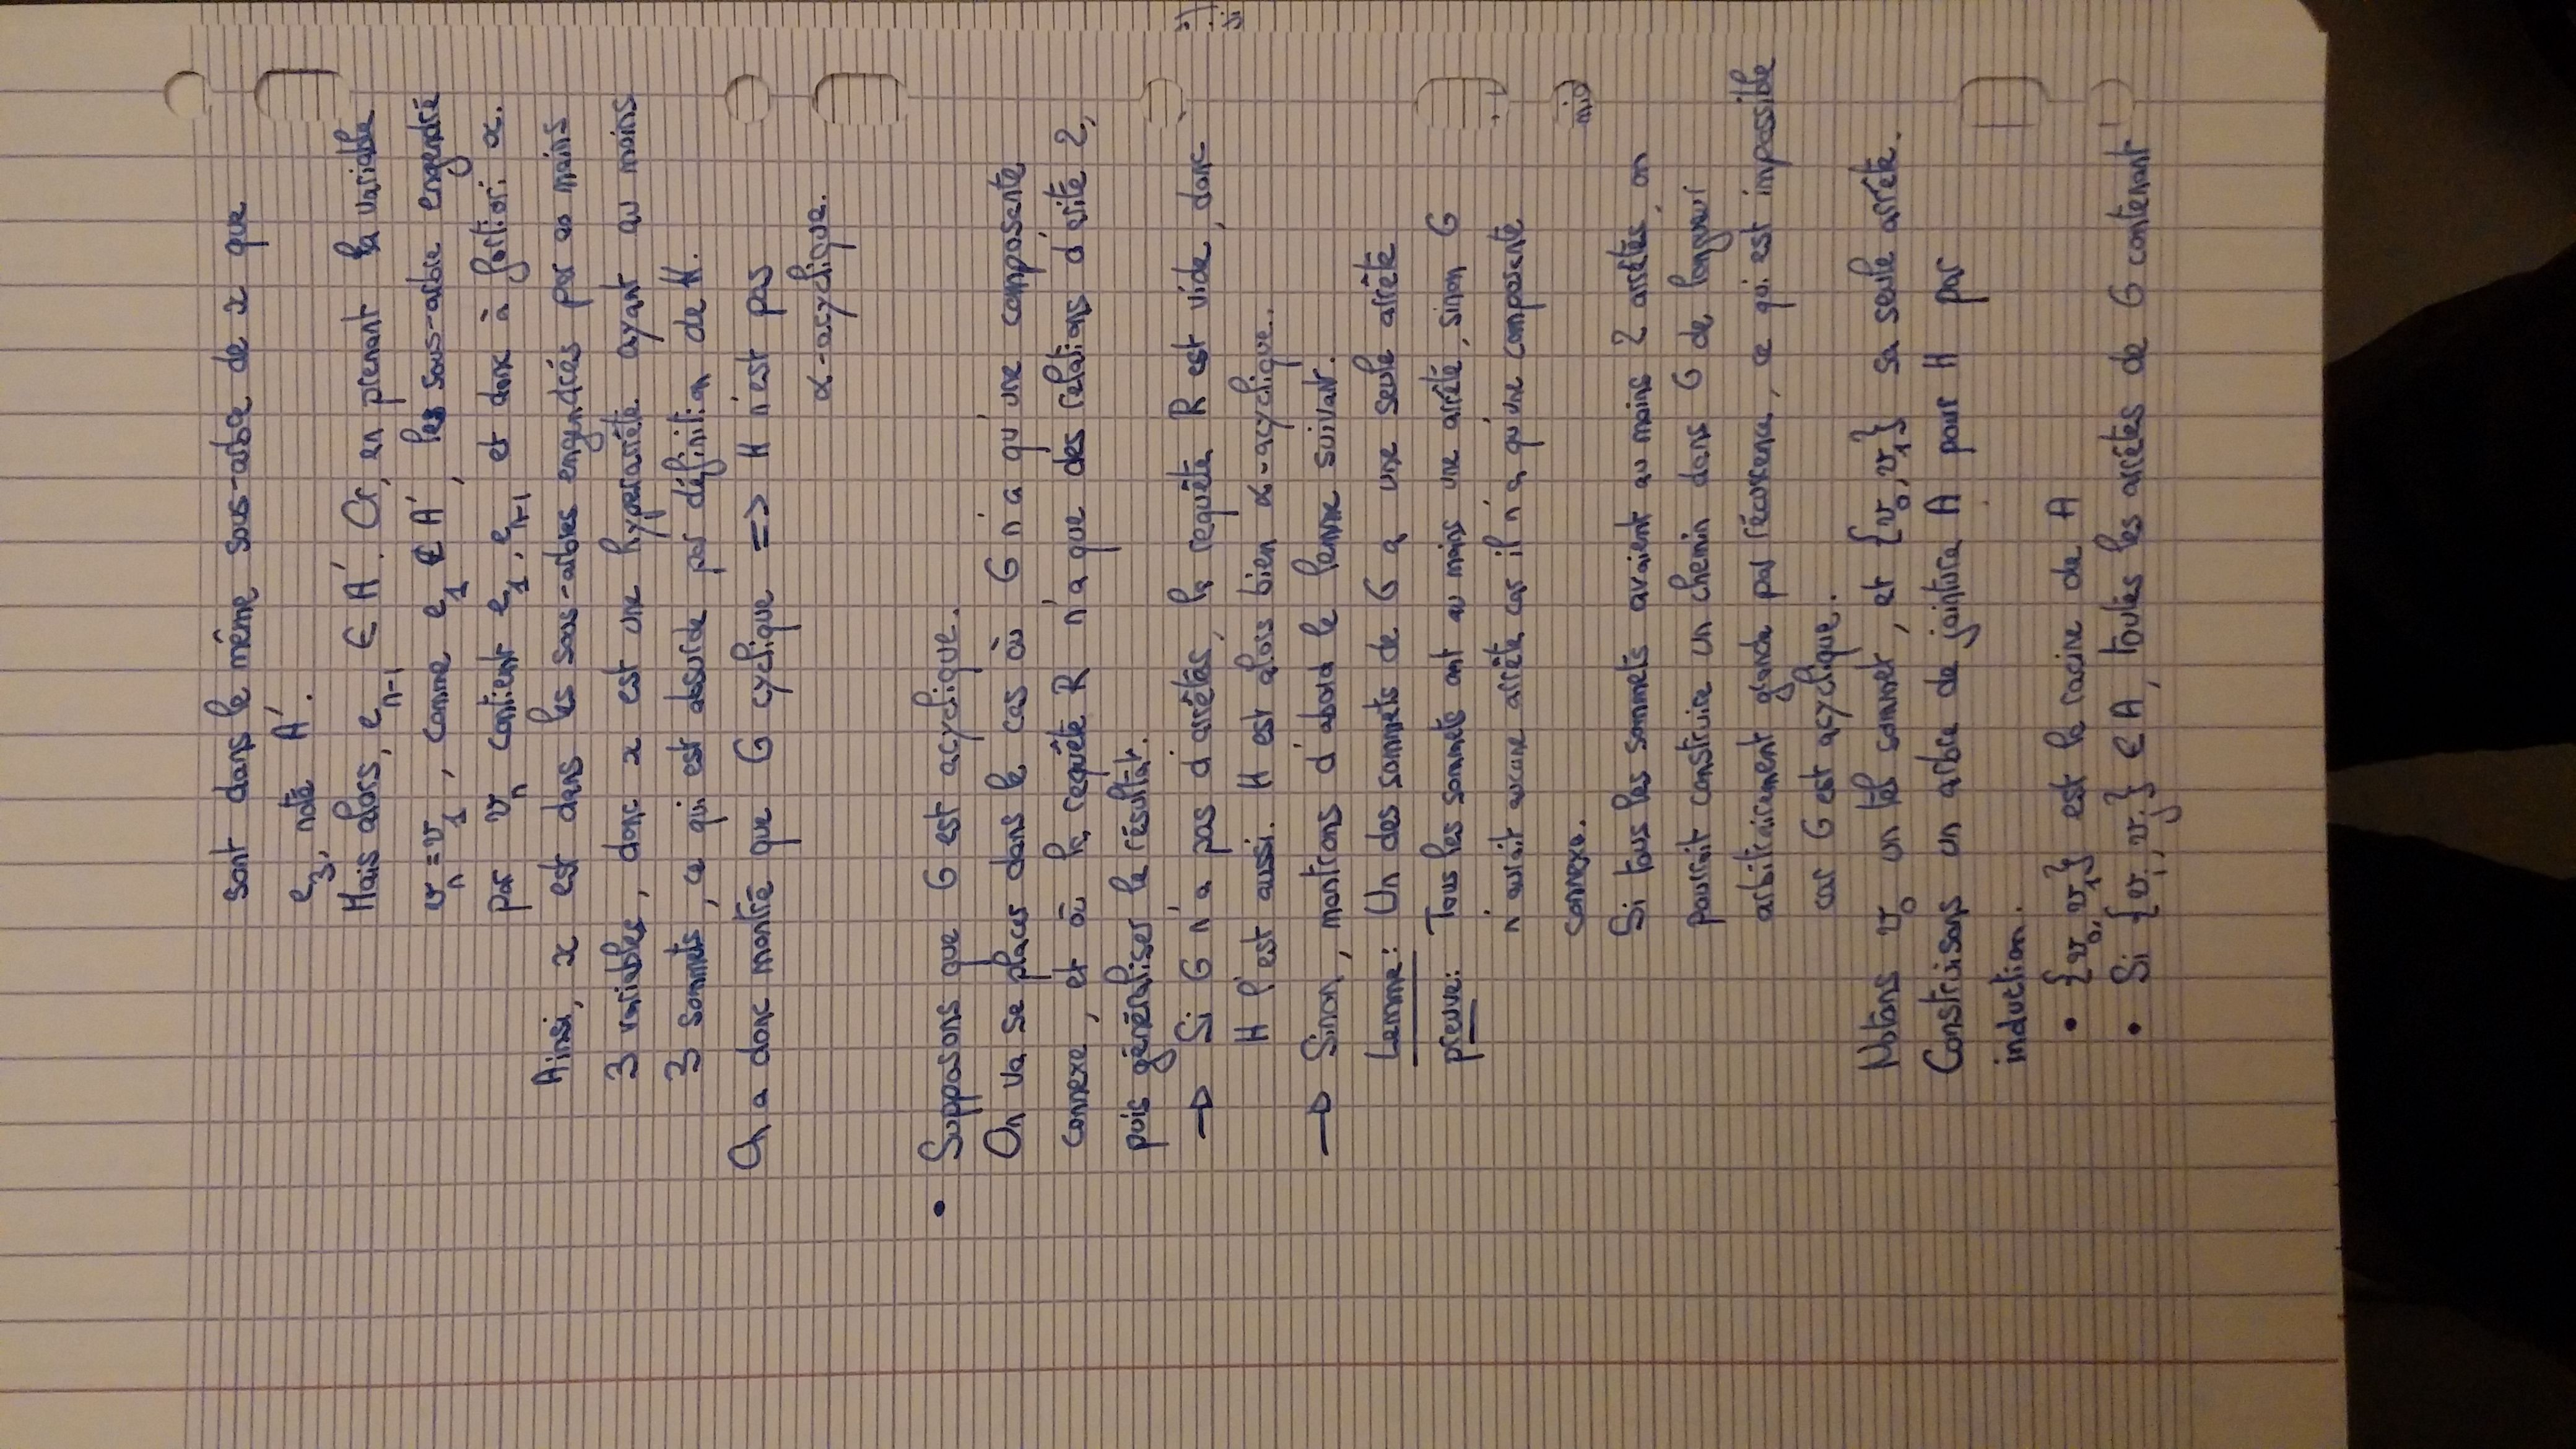 sont dans le même sous-arbre de x que
e₃, noté A'.
Mais alors, eₙ₋₁ ∈ A'. Or, en prenant la variable
vₙ = v₁, comme e₁ ∉ A', le sous-arbre engendré
par vₙ contient e₁, eₙ₋₁ et donc à fortiori x.
Ainsi, x est dans les sous-arbres engendrés par au moins
3 variables, donc x est une hyperarrête ayant au moins
3 sommets, ce qui est absurde par définition de H.
On a donc montré que G cyclique => H n'est pas
α-acyclique.
• Supposons que G est acyclique.
On va se placer dans le cas où G n'a qu'une composante
connexe, et où la requête R n'a que des relations d'arité 2,
puis généraliser le résultat.
→ Si G n'a pas d'arrêtes, la requête R est vide, donc
H l'est aussi. H est alors bien α-acyclique.
→ Sinon, montrons d'abord le lemme suivant.
Lemme: Un des sommets de G a une seule arrête
preuve: Tous les sommets ont au moins une arrête, sinon G
n'aurait aucune arrête car il n'a qu'une composante
connexe.
Si tous les sommets avaient au moins 2 arrêtes, on
pourrait construire un chemin dans G de longueur
arbitrairement grande par récurrence, ce qui est impossible
car G est acyclique.
Notons v₀ un tel sommet, et {v₀, v₁} sa seule arrête.
Construisons un arbre de jointure A pour H par
induction.
• {v₀, v₁} est la racine de A
• Si {vᵢ, vⱼ} ∈ A, toutes les arrêtes de G contenant